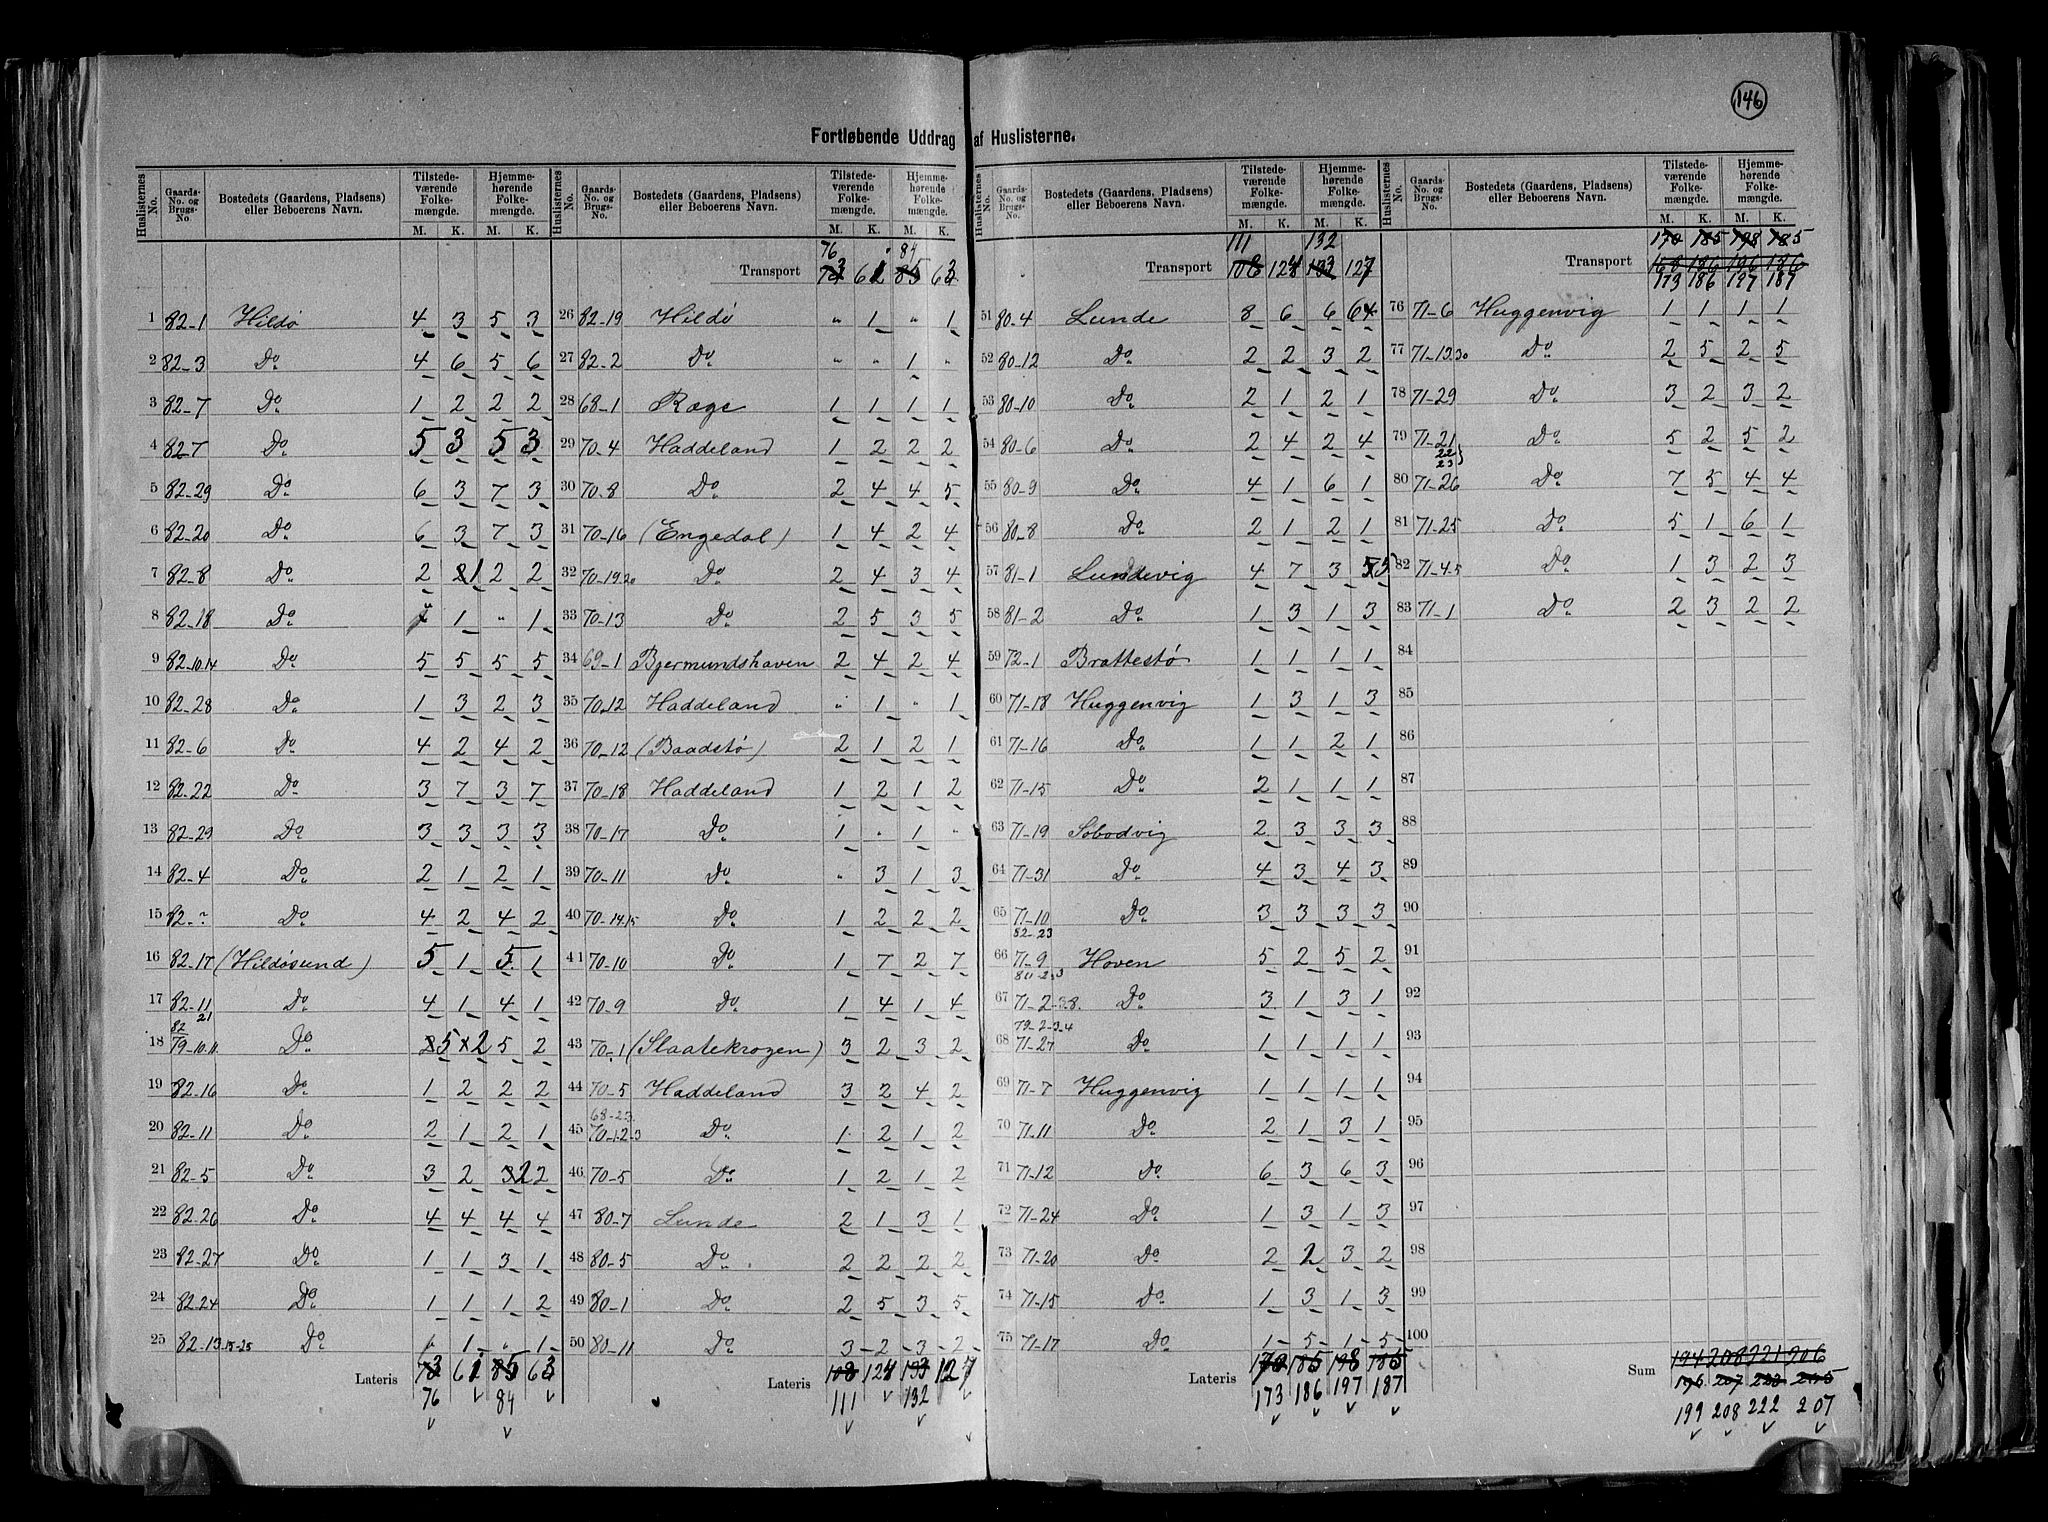 146
Fortløbende Uddrag af Huslisterne.
Huslisternes No. | Gaards-No. og Brugs-No. | Bostedets (Gaardens, Pladsens) eller Beboerens Navn. | Tilstedeværende Folkemængde. M. K. | Hjemmehørende Folkemængde. M. K.
1 82-1 Hildø 4 3 5 3
2 82-3 Do 4 6 5 6
3 82-7 Do 1 2 2 2
4 82-7 Do 5 3 5 3
5 82-29 Do 6 3 7 3
6 82-20 Do 6 3 7 3
7 82-8 Do 2 1 2 2
8 82-18 Do " 1 " 1
9 82-10.14 Do 5 5 5 5
10 82-28 Do 1 3 2 3
11 82-6 Do 4 2 4 2
12 82-22 Do 3 7 3 7
13 82-29 Do 3 3 3 3
14 82-4 Do 2 1 2 1
15 82-? Do 4 2 4 2
16 82-17 (Hildøsund) 5 1 5 1
17 82-11 21 Do 4 1 4 1
18 82 79-10.11 Do 5 2 5 2
19 82-16 Do 1 2 2 2
20 82-11 Do 2 1 2 1
21 82-5 Do 3 2 2 2
22 82-26 Do 4 4 4 4
23 82-27 Do 1 1 3 1
24 82-24 Do 1 1 1 2
25 82-13-15-25 Do " 1 " 1
Lateris 73 61 85 63
76 84
Huslisternes No. | Gaards-No. og Brugs-No. | Bostedets (Gaardens, Pladsens) eller Beboerens Navn. | Tilstedeværende Folkemængde. M. K. | Hjemmehørende Folkemængde. M. K.
76 84
Transport 73 61 85 63
26 82-19 Hildø " 1 " 1
27 82-2 Do " " 1 "
28 68-1 Ræge 1 1 1 1
29 70-4 Haddeland 1 2 2 2
30 70-8 Do 2 4 4 5
31 70-16 (Engedal) 1 4 2 4
32 70-19.20 Do 2 4 3 4
33 70-13 Do 2 5 3 5
34 69-1 Bjermundshaven 2 4 2 4
35 70-12 Haddeland " 1 " 1
36 70-12 (Baadstø) 2 1 2 1
37 70-18 Haddeland 1 2 1 2
38 70-17 Do 1 " 1 "
39 70-11 Do " 3 1 3
40 70-14.15 Do 1 2 2 2
41 70-10 Do 1 7 2 7
42 70-9 Do 1 4 1 4
43 70-1 (Slaatekrogen) 3 2 3 2
44 70-5 Haddeland 3 2 4 2
45 68-23 70-1.2-3 Do 1 2 1 2
46 70-5 Do 1 2 1 2
47 80-7 Lunde 2 1 3 1
48 80-5 Do 2 2 2 2
49 80-1 Do 2 5 3 5
50 80-11 Do 3 2 3 2
Lateris 108 124 133 127
111 132
Huslisternes No. | Gaards-No. og Brugs-No. | Bostedets (Gaardens, Pladsens) eller Beboerens Navn. | Tilstedeværende Folkemængde. M. K. | Hjemmehørende Folkemængde. M. K.
111 132
Transport 108 124 133 127
51 80-4 Lunde 8 6 6 6
52 80-12 Do 2 2 3 2
53 80-10 Do 2 1 2 1
54 80-6 Do 2 4 2 4
55 80-9 Do 4 1 6 1
56 80-8 Do 2 1 2 1
57 81-1 Lundevig 4 7 3 5
58 81-2 Do 1 3 1 3
59 72-1 Brattestø 1 1 1 1
60 71-18 Huggenvig 1 3 1 3
61 71-16 Do 1 1 2 1
62 71-15 Do 2 1 1 1
63 71-19 Søbodvig 2 3 3 3
64 71-31 Do 4 3 4 3
65 71-10 82-23 Do 3 3 3 3
66 71-9 Hoven 5 2 5 2
67 71-2-3.8. Do 3 1 3 1
68 79-2-3-4 71-27 Do 1 1 1 1
69 71-7 Huggenvig 1 1 1 1
70 71.11 Do 2 1 3 1
71 71-12 Do 6 3 6 3
72 71-24 Do 1 3 1 3
73 71-20 Do 2 2 3 2
74 71-15 Do 1 3 1 3
75 71-17 Do 1 5 1 5
Lateris 170 185 198 185
173 186 197 187
Huslisternes No. | Gaards-No. og Brugs-No. | Bostedets (Gaardens, Pladsens) eller Beboerens Navn. | Tilstedeværende Folkemængde. M. K. | Hjemmehørende Folkemængde. M. K.
170 185 198 185
Transport 168 186 196 186
173 186 197 187
76 71-6 Huggenvig 1 1 1 1
77 71-13.30 Do 2 5 2 5
78 71-29 Do 3 2 3 2
79 71-21 22 23 Do 5 2 5 2
80 71-26 Do 7 5 4 4
81 71-25 Do 5 1 6 1
82 71-4.5 Do 1 3 2 3
83 71-1 Do 2 3 2 2
84
85
86
87
88
89
90
91
92
93
94
95
96
97
98
99
100
Sum 194 208 221 206
196 207 223 205
199 208 222 207